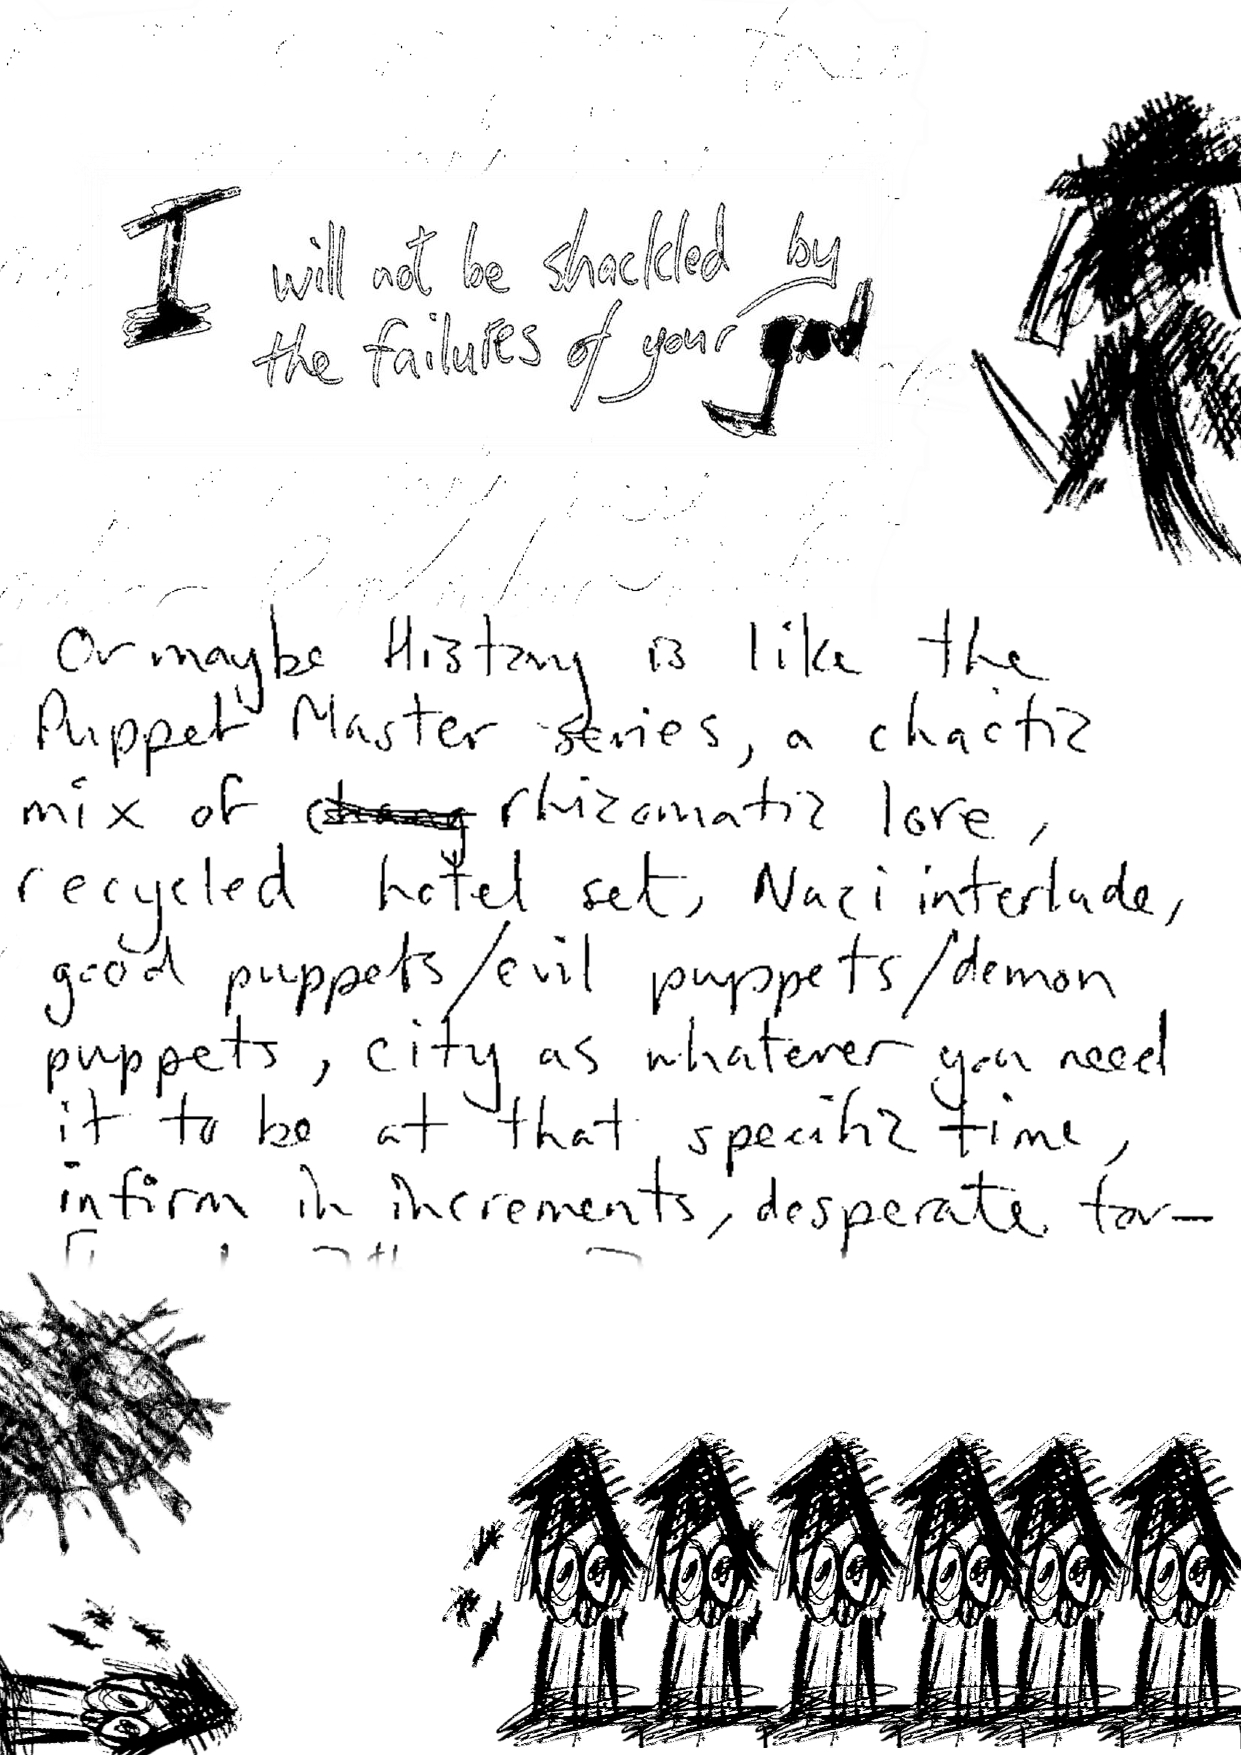 I will not be shackled by
the failures of your god
Or maybe History is like the
Puppet Master series, a chaotic
mix of rhizomatic lore,
recycled hotel set, Nazi interlude,
good puppets/evil puppets/demon
puppets, city as whatever you need
it to be at that specific time,
infirm in increments, desperate for-